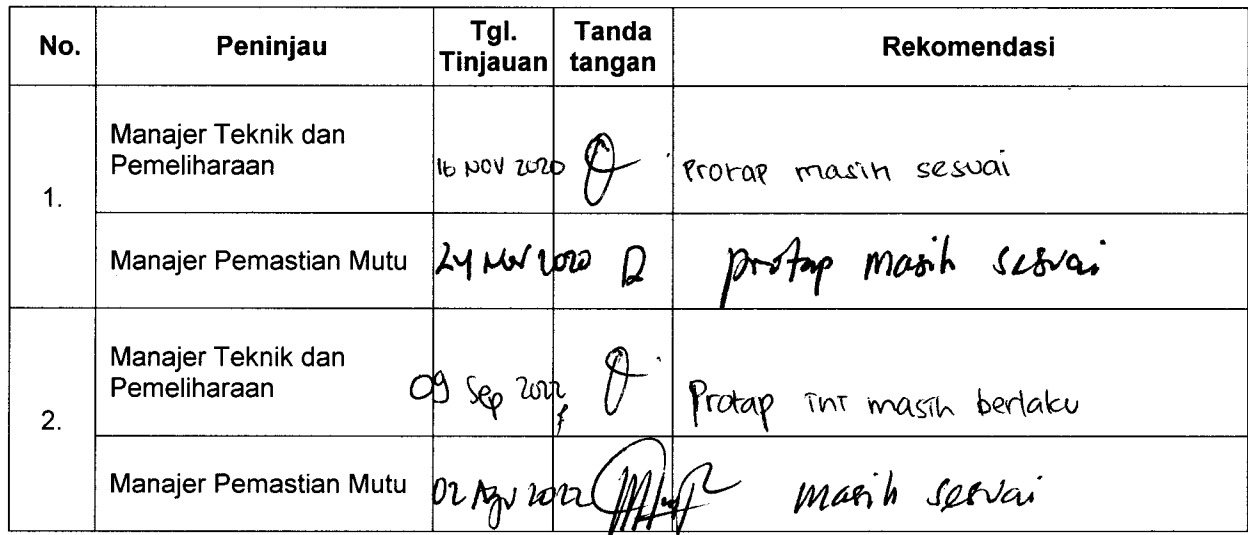 No. Peninjau Tgl. Tinjauan Tanda tangan Rekomendasi
1.
Manajer Teknik dan
Pemeliharaan 16 NOV 2020 Protap masih sesuai
Manajer Pemastian Mutu 24 Nov 2020 protap masih sesuai
2.
Manajer Teknik dan
Pemeliharaan 09 Sep 2022 Protap ini masih berlaku
Manajer Pemastian Mutu 02 Agu 2022 masih sesuai